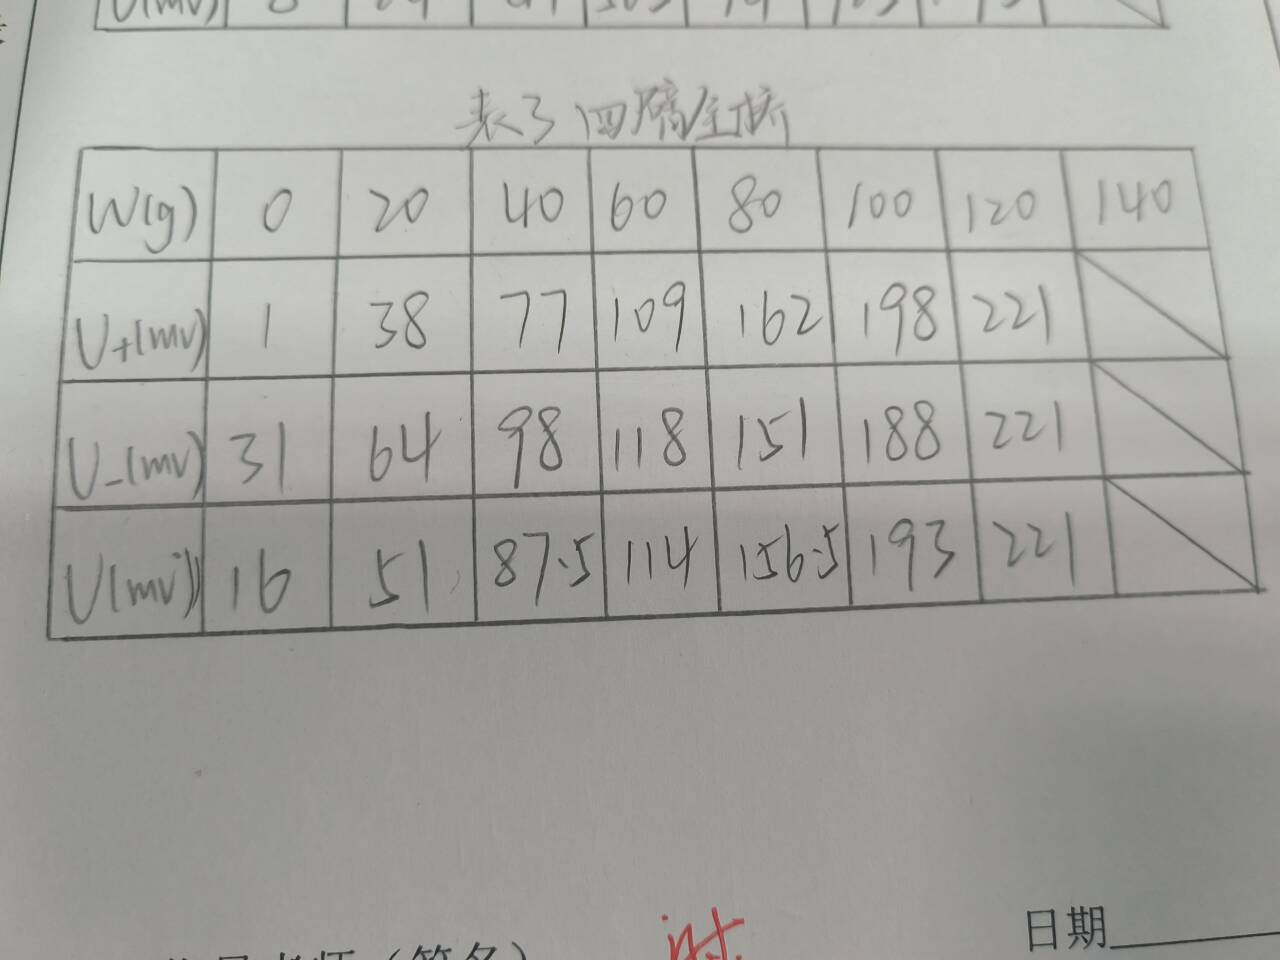 表3 四臂全桥
W(g) 0 20 40 60 80 100 120 140
U+(mv) 1 38 77 109 162 198 221
U-(mv) 31 64 98 118 151 188 221
U(mv) 16 51 87.5 114 156.5 193 221
日期